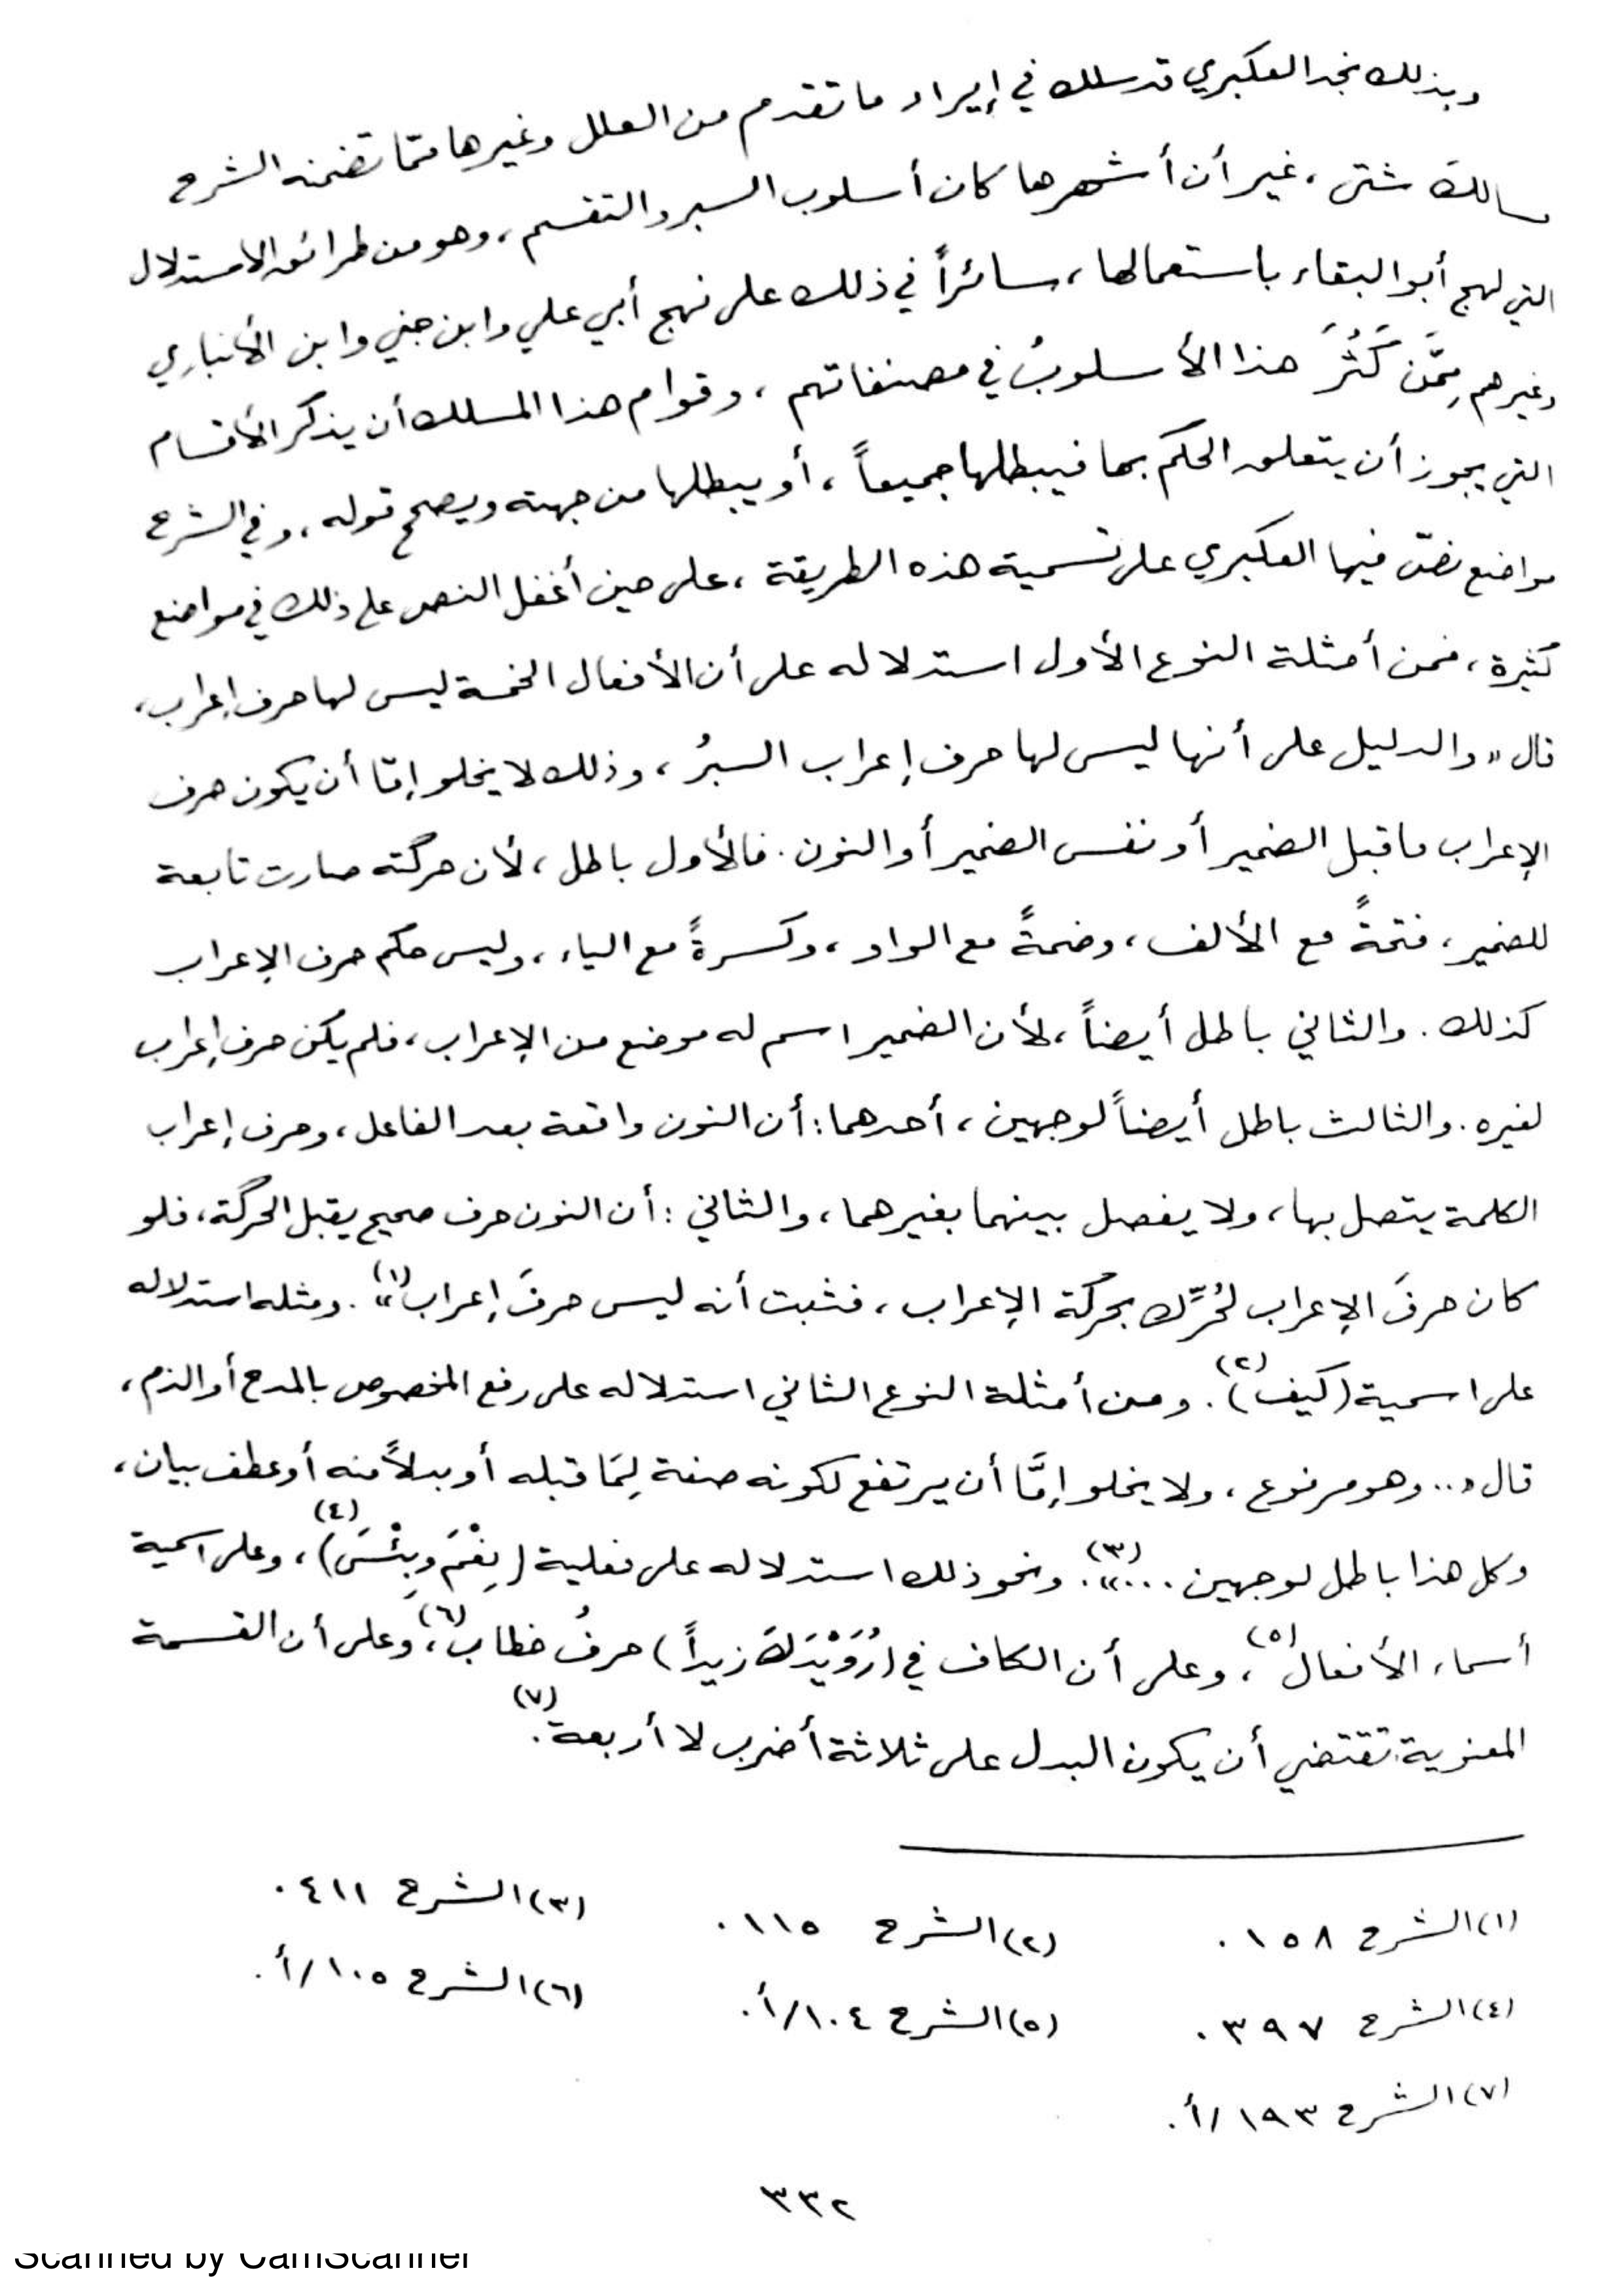 وبذلك نجد العكبري قد سلك في إيراد ما تقدم من العلل وغيرها ممّا تضمنه الشرح
مسالكَ شتى ، غير أن أشهرها كان أسلوب السبر والتقسيم ، وهو من طرائق الاستدلال
التي لهج أبو البقاء باستعمالها ، سائراً في ذلك على نهج أبي علي وابن جني وابن الأنباري
وغيرهم مِمَّن كَثُرَ هذا الأسلوبُ في مصنفاتهم ، وقوام هذا المسلك أن يذكر الأقسام
التي يجوز أن يتعلق الحكم بها فيبطلها جميعاً ، أو يبطلها من جهته ويصحح قوله ، وفي الشرح
مواضع نصّ فيها العكبري على تسمية هذه الطريقة ، على حين أغفل النص على ذلك في مواضع
كثيرة ، فمن أمثلة النوع الأول استدلاله على أن الأفعال الخمسة ليس لها حرف إعراب ،
قال « والدليل على أنها ليس لها حرف إعراب السبرُ ، وذلك لا يخلو إمّا أن يكون حرف
الإعراب ما قبل الضمير أو نفس الضمير أو النون . فالأول باطل ، لأن حركته صارت تابعة
للضمير ، فتحةً مع الألف ، وضمةً مع الواو ، وكسرةً مع الياء ، وليس حكم حرف الإعراب
كذلك . والثاني باطل أيضاً ، لأن الضمير اسم له موضع من الإعراب ، فلم يكن حرف إعراب
لغيره . والثالث باطل أيضاً لوجهين ، أحدهما : أن النون واقعة بعد الفاعل ، وحرف إعراب
الكلمة يتصل بها ، ولا يفصل بينهما بغيرهما ، والثاني : أن النون حرف صحيح يقبل الحركة ، فلو
كان حرفَ الإعراب لحُرِّك بحركة الإعراب ، فثبت أنه ليس حرفَ إعراب »(١) . ومثله استدلاله
على اسمية (كيف)(٢) . ومن أمثلة النوع الثاني استدلاله على رفع المخصوص بالمدح أو الذم ،
قال « .. وهو مرفوع ، ولا يخلو إمَّا أن يرتفع لكونه صفة لِمَا قبله أو بدلاً منه أو عطف بيان ،
وكل هذا باطل لوجهين ... »(٣) . ونحو ذلك استدلاله على فعلية (نِعْمَ وبِئْسَ)(٤) ، وعلى اسمية
أسماء الأفعال(٥) ، وعلى أن الكاف في (رُوَيْدَكَ زيداً) حرفُ خطاب(٦) ، وعلى أن القسمة
المعنوية تقتضي أن يكون البدل على ثلاثة أضرب لا أربعة(٧) .
(١) الشرح ١٥٨ . (٢) الشرح ١١٥ . (٣) الشرح ٤١١ .
(٤) الشرح ٣٩٧ . (٥) الشرح ١٠٤/أ . (٦) الشرح ١٠٥/أ .
(٧) الشرح ١٩٣/أ .
٣٣٢
Scanned by CamScanner